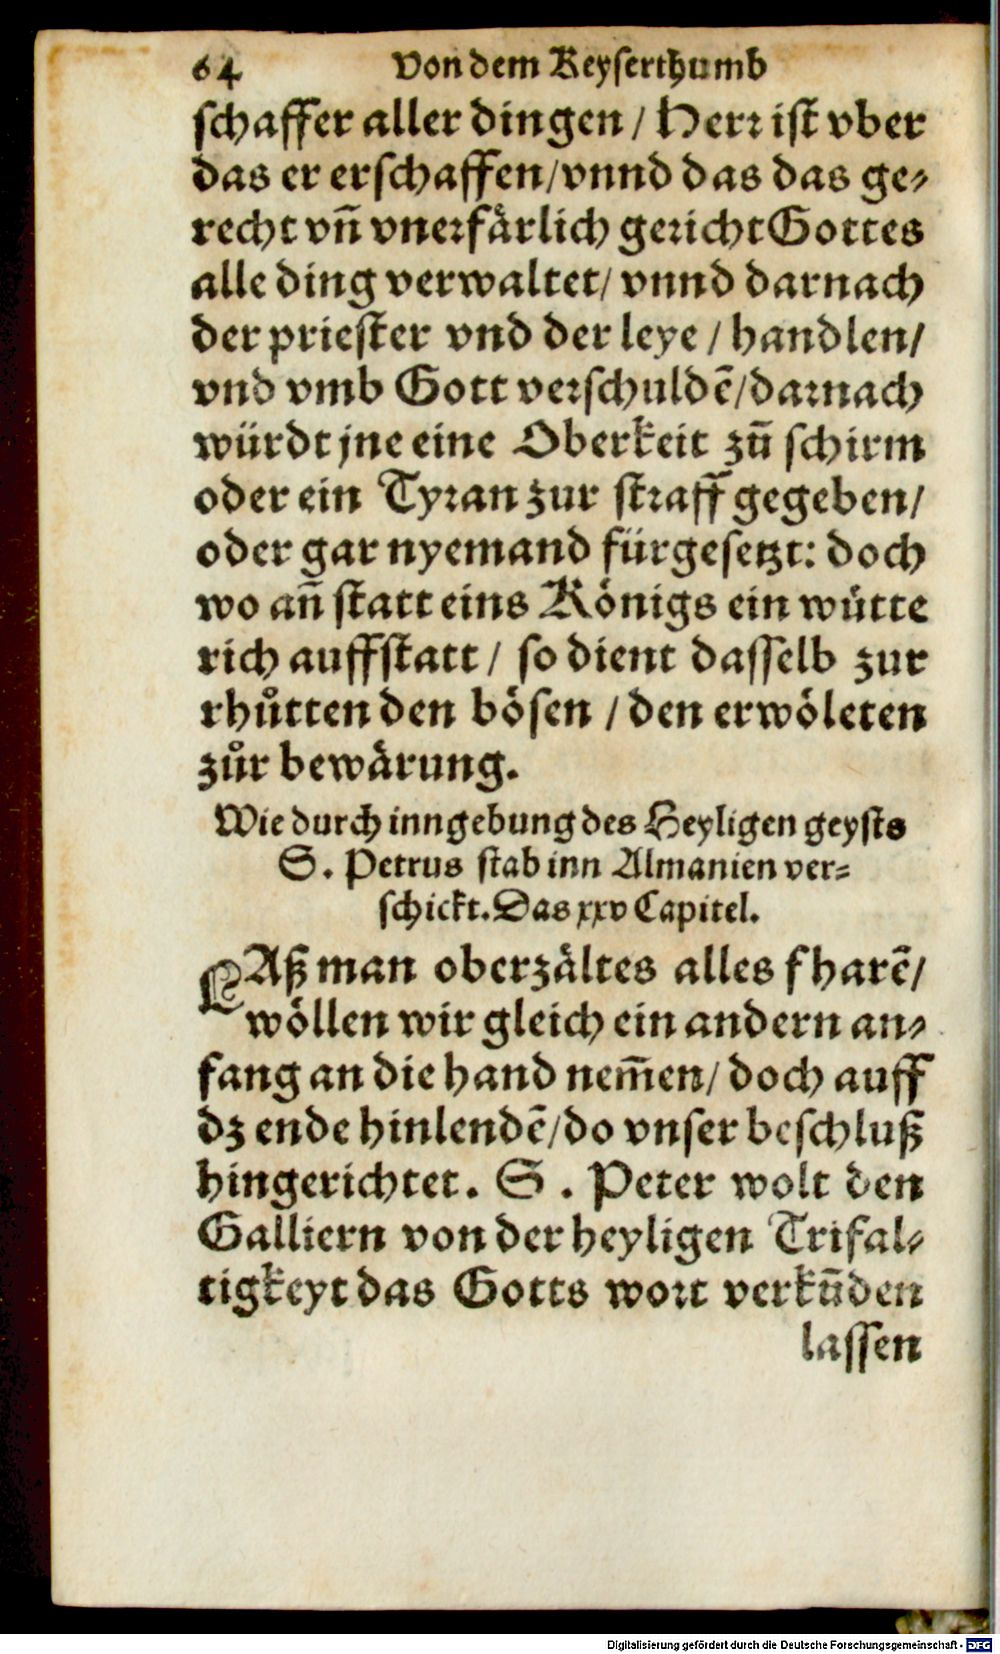 64 Von dem Keyserthumb
schaffer aller dingen / Herr ist vber
das er erschaffen / vnnd das das ge-
recht vn̄ vnerfårlich gericht Gottes
alle ding verwaltet / vnnd darnach
der priester vnd der leye / handlen /
vnd vmb Gott verschuldē / darnach
würdt jne eine Oberkeit zū schirm
oder ein Tyran zur straff gegeben /
oder gar nyemand fürgesetzt: doch
wo an̄ statt eins Königs ein wütte
rich auffstatt / so dient dasselb zur
rhůtten den bösen / den erwöleten
zůr bewärung.
Wie durch inngebung des Heyligen geysts
S. Petrus stab inn Almanien ver-
schickt. Das xxv Capitel.
LAß man oberzältes alles fharē /
wöllen wir gleich ein andern an-
fang an die hand nem̄en / doch auff
dz ende hinlendē / do vnser beschluß
hingerichtet. S. Peter wolt den
Galliern von der heyligen Trifal-
tigkeyt das Gotts wort verkün̄den
lassen
Digitalisierung gefördert durch die Deutsche Forschungsgemeinschaft - DFG